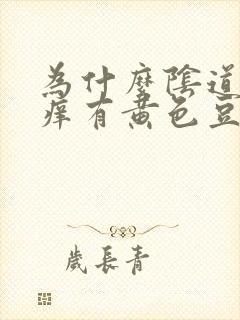 為什麼陰道
痒有黃色豆
歲長青